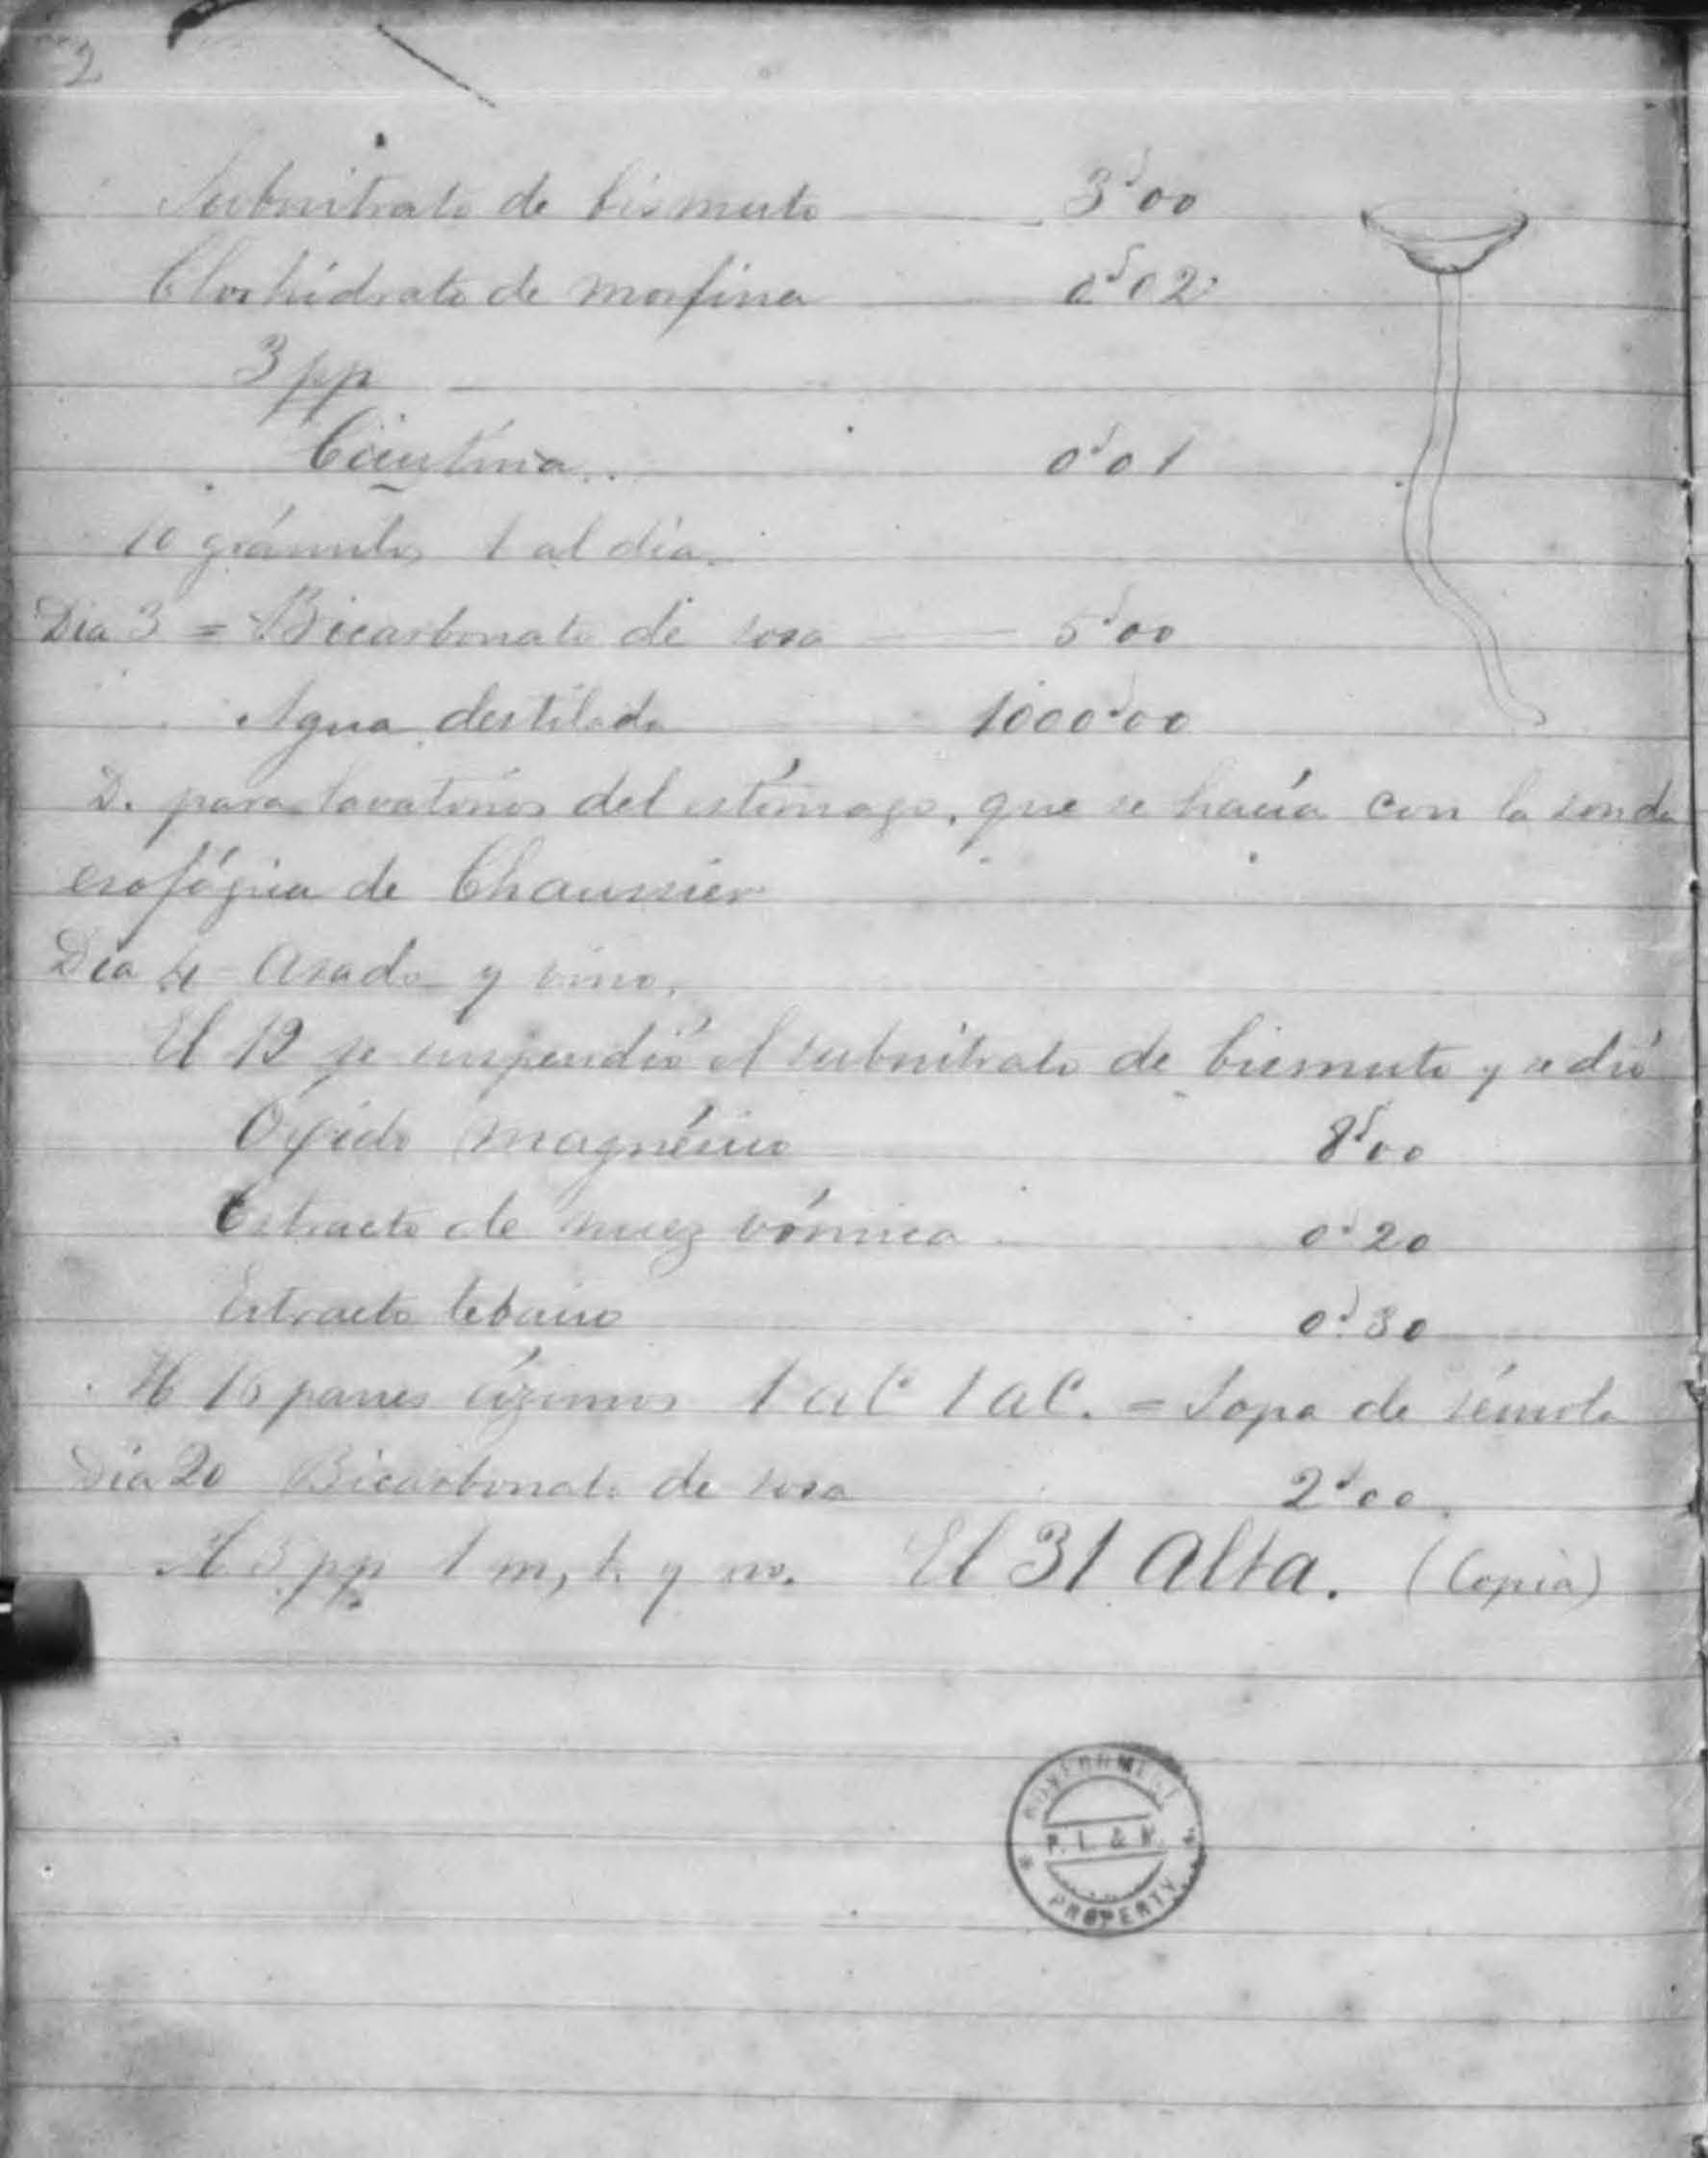 2
Subnitrato de bismuto 3'00
Clorhidrato de morfina 0'02
3 pp
0'01
10 gránulos 1 al día.
Dia 3 = Bicarbonato de sosa 5'00
Agua destilada 1000'00
D. para lavatorios del estómago, que se hacía con la sonda
esofágica de Chaussier
Dia 4 Asado y vino.
El 12 se suspendió el subnitrato de bismuto y se dió
Óxido magnésico 8'00
Estracto de nuez vómica 0'20
Estracto tebaico 0'30
H 16 panes ázimos 1 a C 1 a C. = Sopa de sémola
Dia 20 Bicarbonato de sosa 2'00
H 3 pp 1 m, t. y no. El 31 Alta. (Copia)
GOVERNMENT
P. L. & M.
PROPERTY